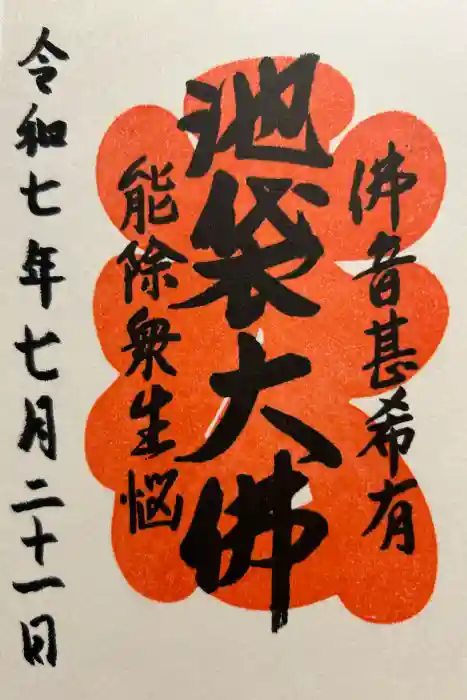 佛音甚希有
池袋大佛
能除衆生悩
令和七年七月二十一日